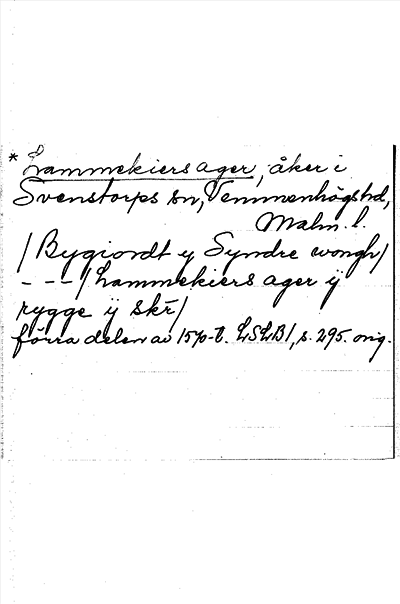 * Lammekiers ager, åker i
Svenstorps sn, Vemmenhögs hd,
Malm. l.
/ Bygiordt y Syndre wongh /
- - - / Lammekiers ager ÿ
rygge ÿ skr̄ /
förra delen av 1570-t. LSLB1, s. 295. orig.